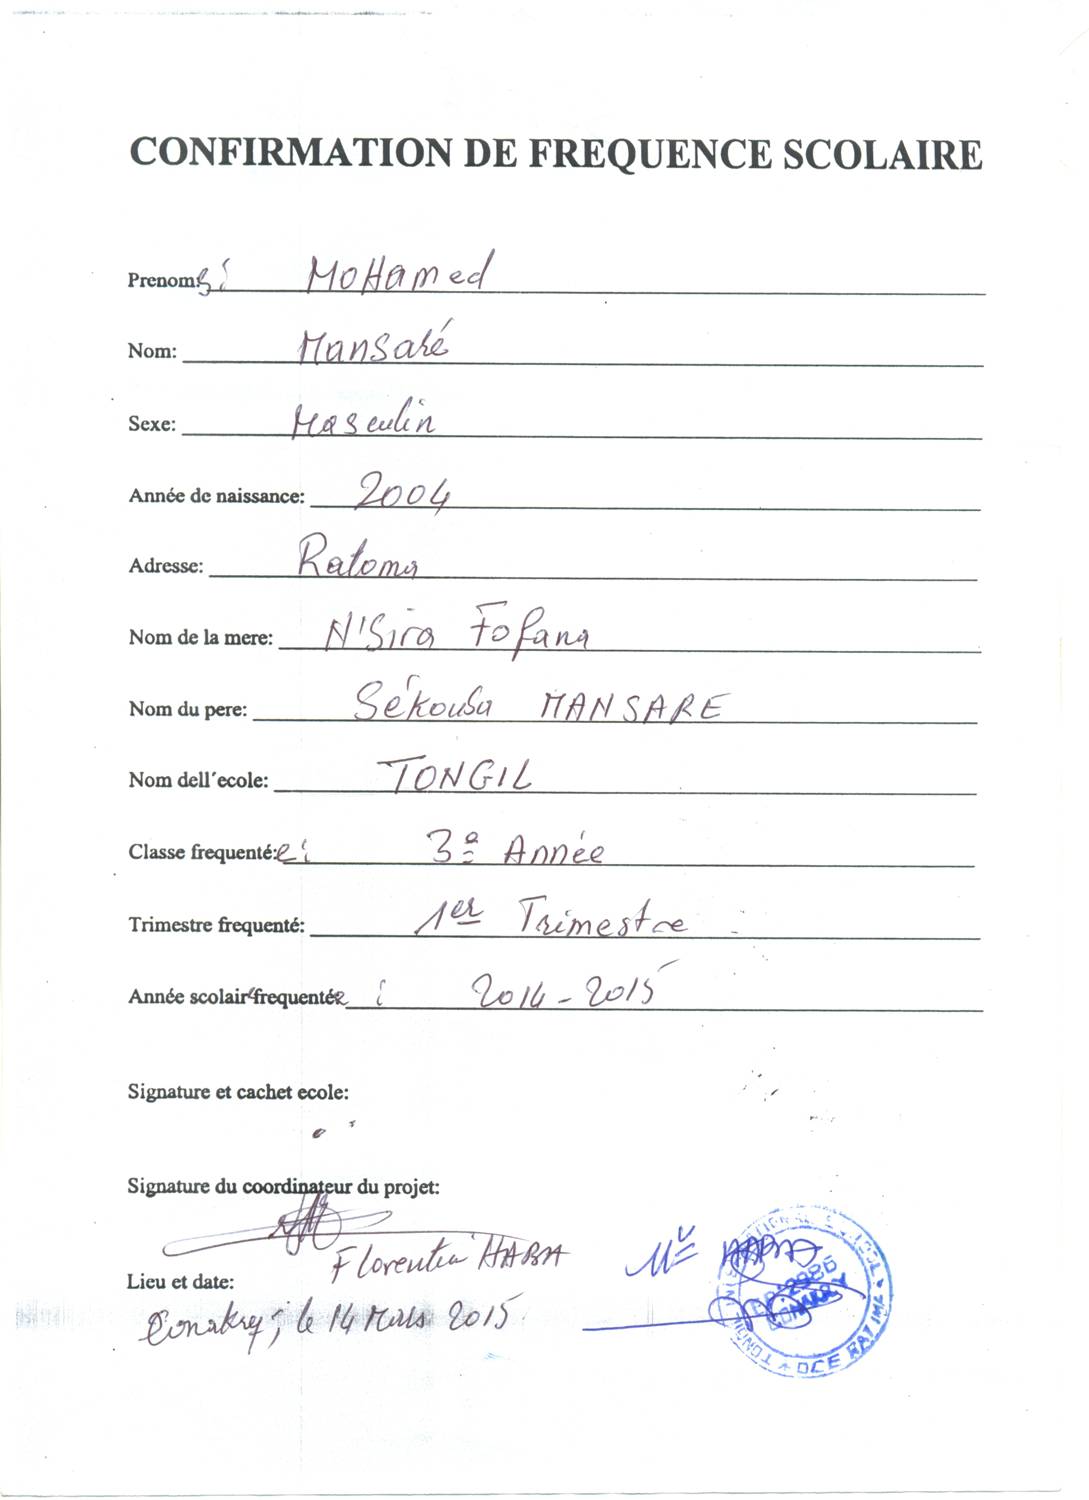 CONFIRMATION DE FREQUENCE SCOLAIRE
Prenoms: Mohamed
Nom: Mansaré
Sexe: Masculin
Année de naissance: 2004
Adresse: Ratoma
Nom de la mere: N'Sira Fofana
Nom du pere: Sékouba MANSARE
Nom dell´ecole: TONGIL
Classe frequentée: 3e Année
Trimestre frequenté: 1er Trimestre
Année scolaire frequentée: 2014-2015
Signature et cachet ecole:
Signature du coordinateur du projet:
Florentin HABA
Lieu et date:
Conakry, le 14 Mars 2015
HABA
TONGIL INTERNATIONAL SCHOOL
BP: 2986
CONAKRY
DCE RATOMA